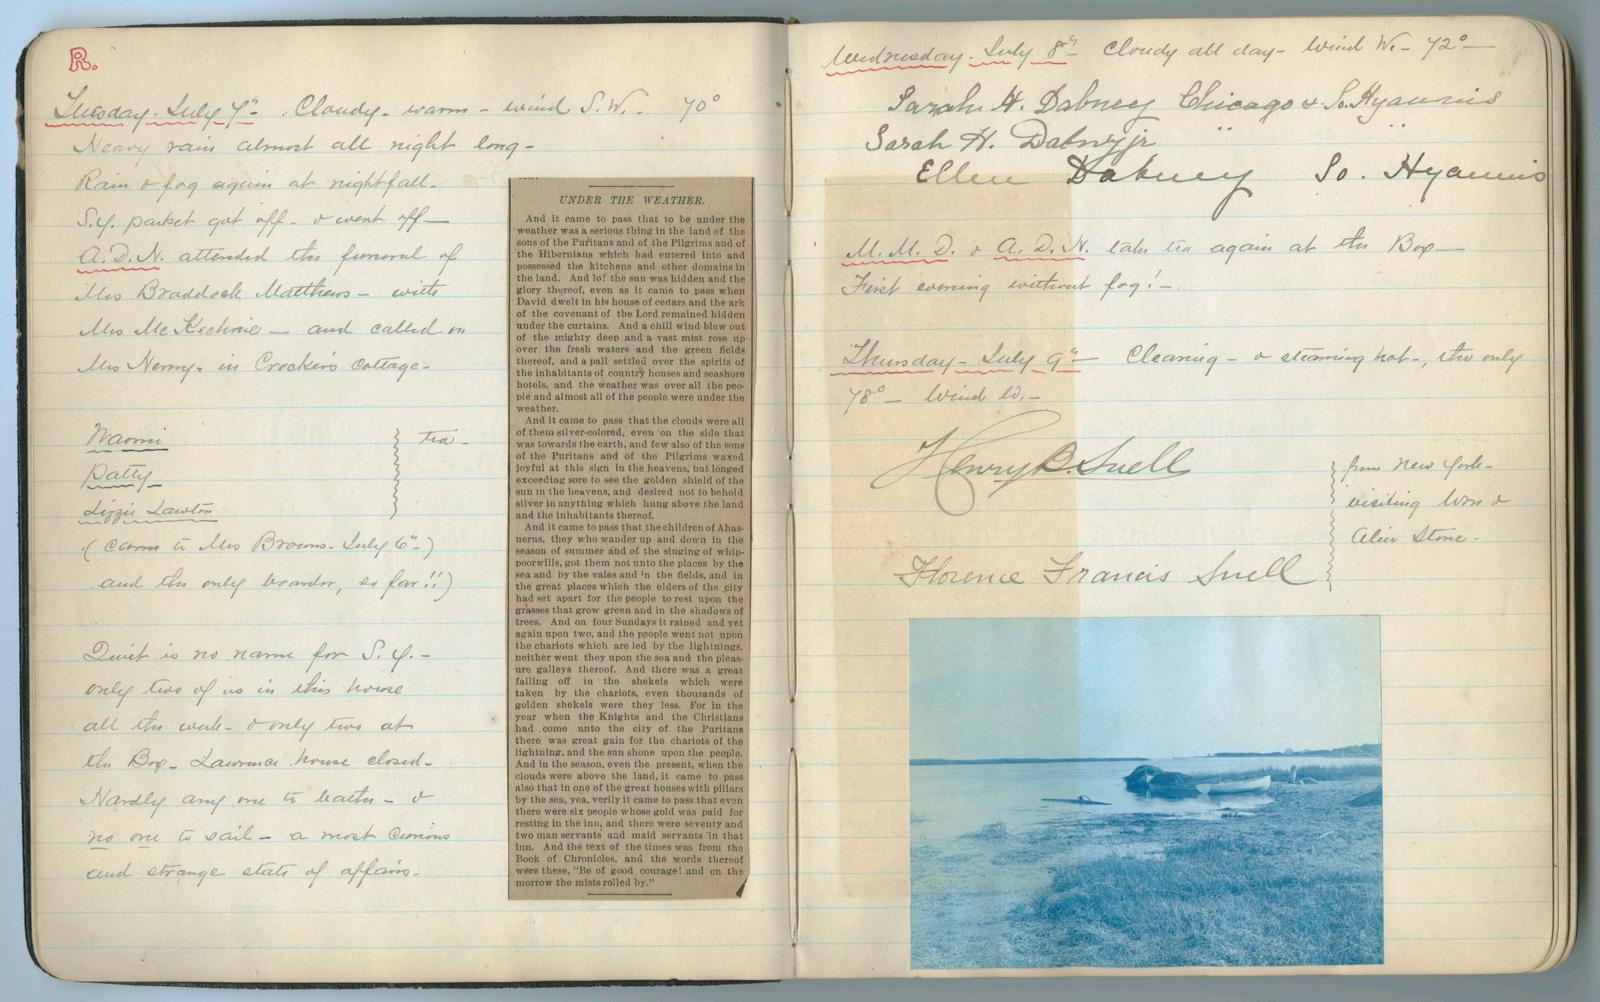 R.
Tuesday. July 7th. Cloudy. warm - wind S.W. - 70°
Heavy rain almost all night long -
Rain & fog again at nightfall.
S.Y. packet got off - & went off -
A.D.N. attended the funeral of
Mrs Braddock Matthews - with
Mrs McKechnie - and called on
Mrs in Crocker's Cottage -
Naomi
Patty
Lizzie Lawton
tea -
(came to Mrs Browns. July 6th -)
and the only boarder, so far!!)
Quiet is no name for S.Y. -
only two of us in this house
all the week - & only two at
the Box - Lawrence house closed -
Hardly any one to bathe - &
no one to sail - a most curious
and strange state of affairs.
UNDER THE WEATHER.
And it came to pass that to be under the
weather was a serious thing in the land of the
sons of the Puritans and of the Pilgrims and of
the Hibernians which had entered into and
possessed the kitchens and other domains in
the land. And lo! the sun was hidden and the
glory thereof, even as it came to pass when
David dwelt in his house of cedars and the ark
of the covenant of the Lord remained hidden
under the curtains. And a chill wind blew out
of the mighty deep and a vast mist rose up
over the fresh waters and the green fields
thereof, and a pall settled over the spirits of
the inhabitants of country houses and seashore
hotels, and the weather was over all the peo-
ple and almost all of the people were under the
weather.
And it came to pass that the clouds were all
of them silver-colored, even on the side that
was towards the earth, and few also of the sons
of the Puritans and of the Pilgrims waxed
joyful at this sign in the heavens, but longed
exceeding sore to see the golden shield of the
sun in the heavens, and desired not to behold
silver in anything which hung above the land
and the inhabitants thereof.
And it came to pass that the children of Ahas-
nerus, they who wander up and down in the
season of summer and of the singing of whip-
poorwills, got them not unto the places by the
sea and by the vales and in the fields, and in
the great places which the elders of the city
had set apart for the people to rest upon the
grasses that grow green and in the shadows of
trees. And on four Sundays it rained and yet
again upon two, and the people went not upon
the chariots which are led by the lightnings,
neither went they upon the sea and the pleas-
ure galleys thereof. And there was a great
falling off in the shekels which were
taken by the chariots, even thousands of
golden shekels were they less. For in the
year when the Knights and the Christians
had come unto the city of the Puritans
there was great gain for the chariots of the
lightning, and the sun shone upon the people.
And in the season, even the present, when the
clouds were above the land, it came to pass
also that in one of the great houses with pillars
by the sea, yea, verily it came to pass that even
there were six people whose gold was paid for
resting in the inn, and there were seventy and
two man servants and maid servants in that
inn. And the text of the times was from the
Book of Chronicles, and the words thereof
were these, "Be of good courage! and on the
morrow the mists rolled by."
Wednesday. July 8th Cloudy all day - Wind W. - 72° -
Sarah H. Dabney Chicago & So. Hyannis
Sarah H. Dabney jr " "
Ellen Dabney So. Hyannis
M.M.D. & A.D.N. take tea again at the Box -
First evening without fog! -
Thursday - July 9th - Clearing - & steaming hot -, tho only
78° - Wind W. -
Henry B. Snell
Florence Francis Snell
from New York -
visiting Wm &
Alice Stone -